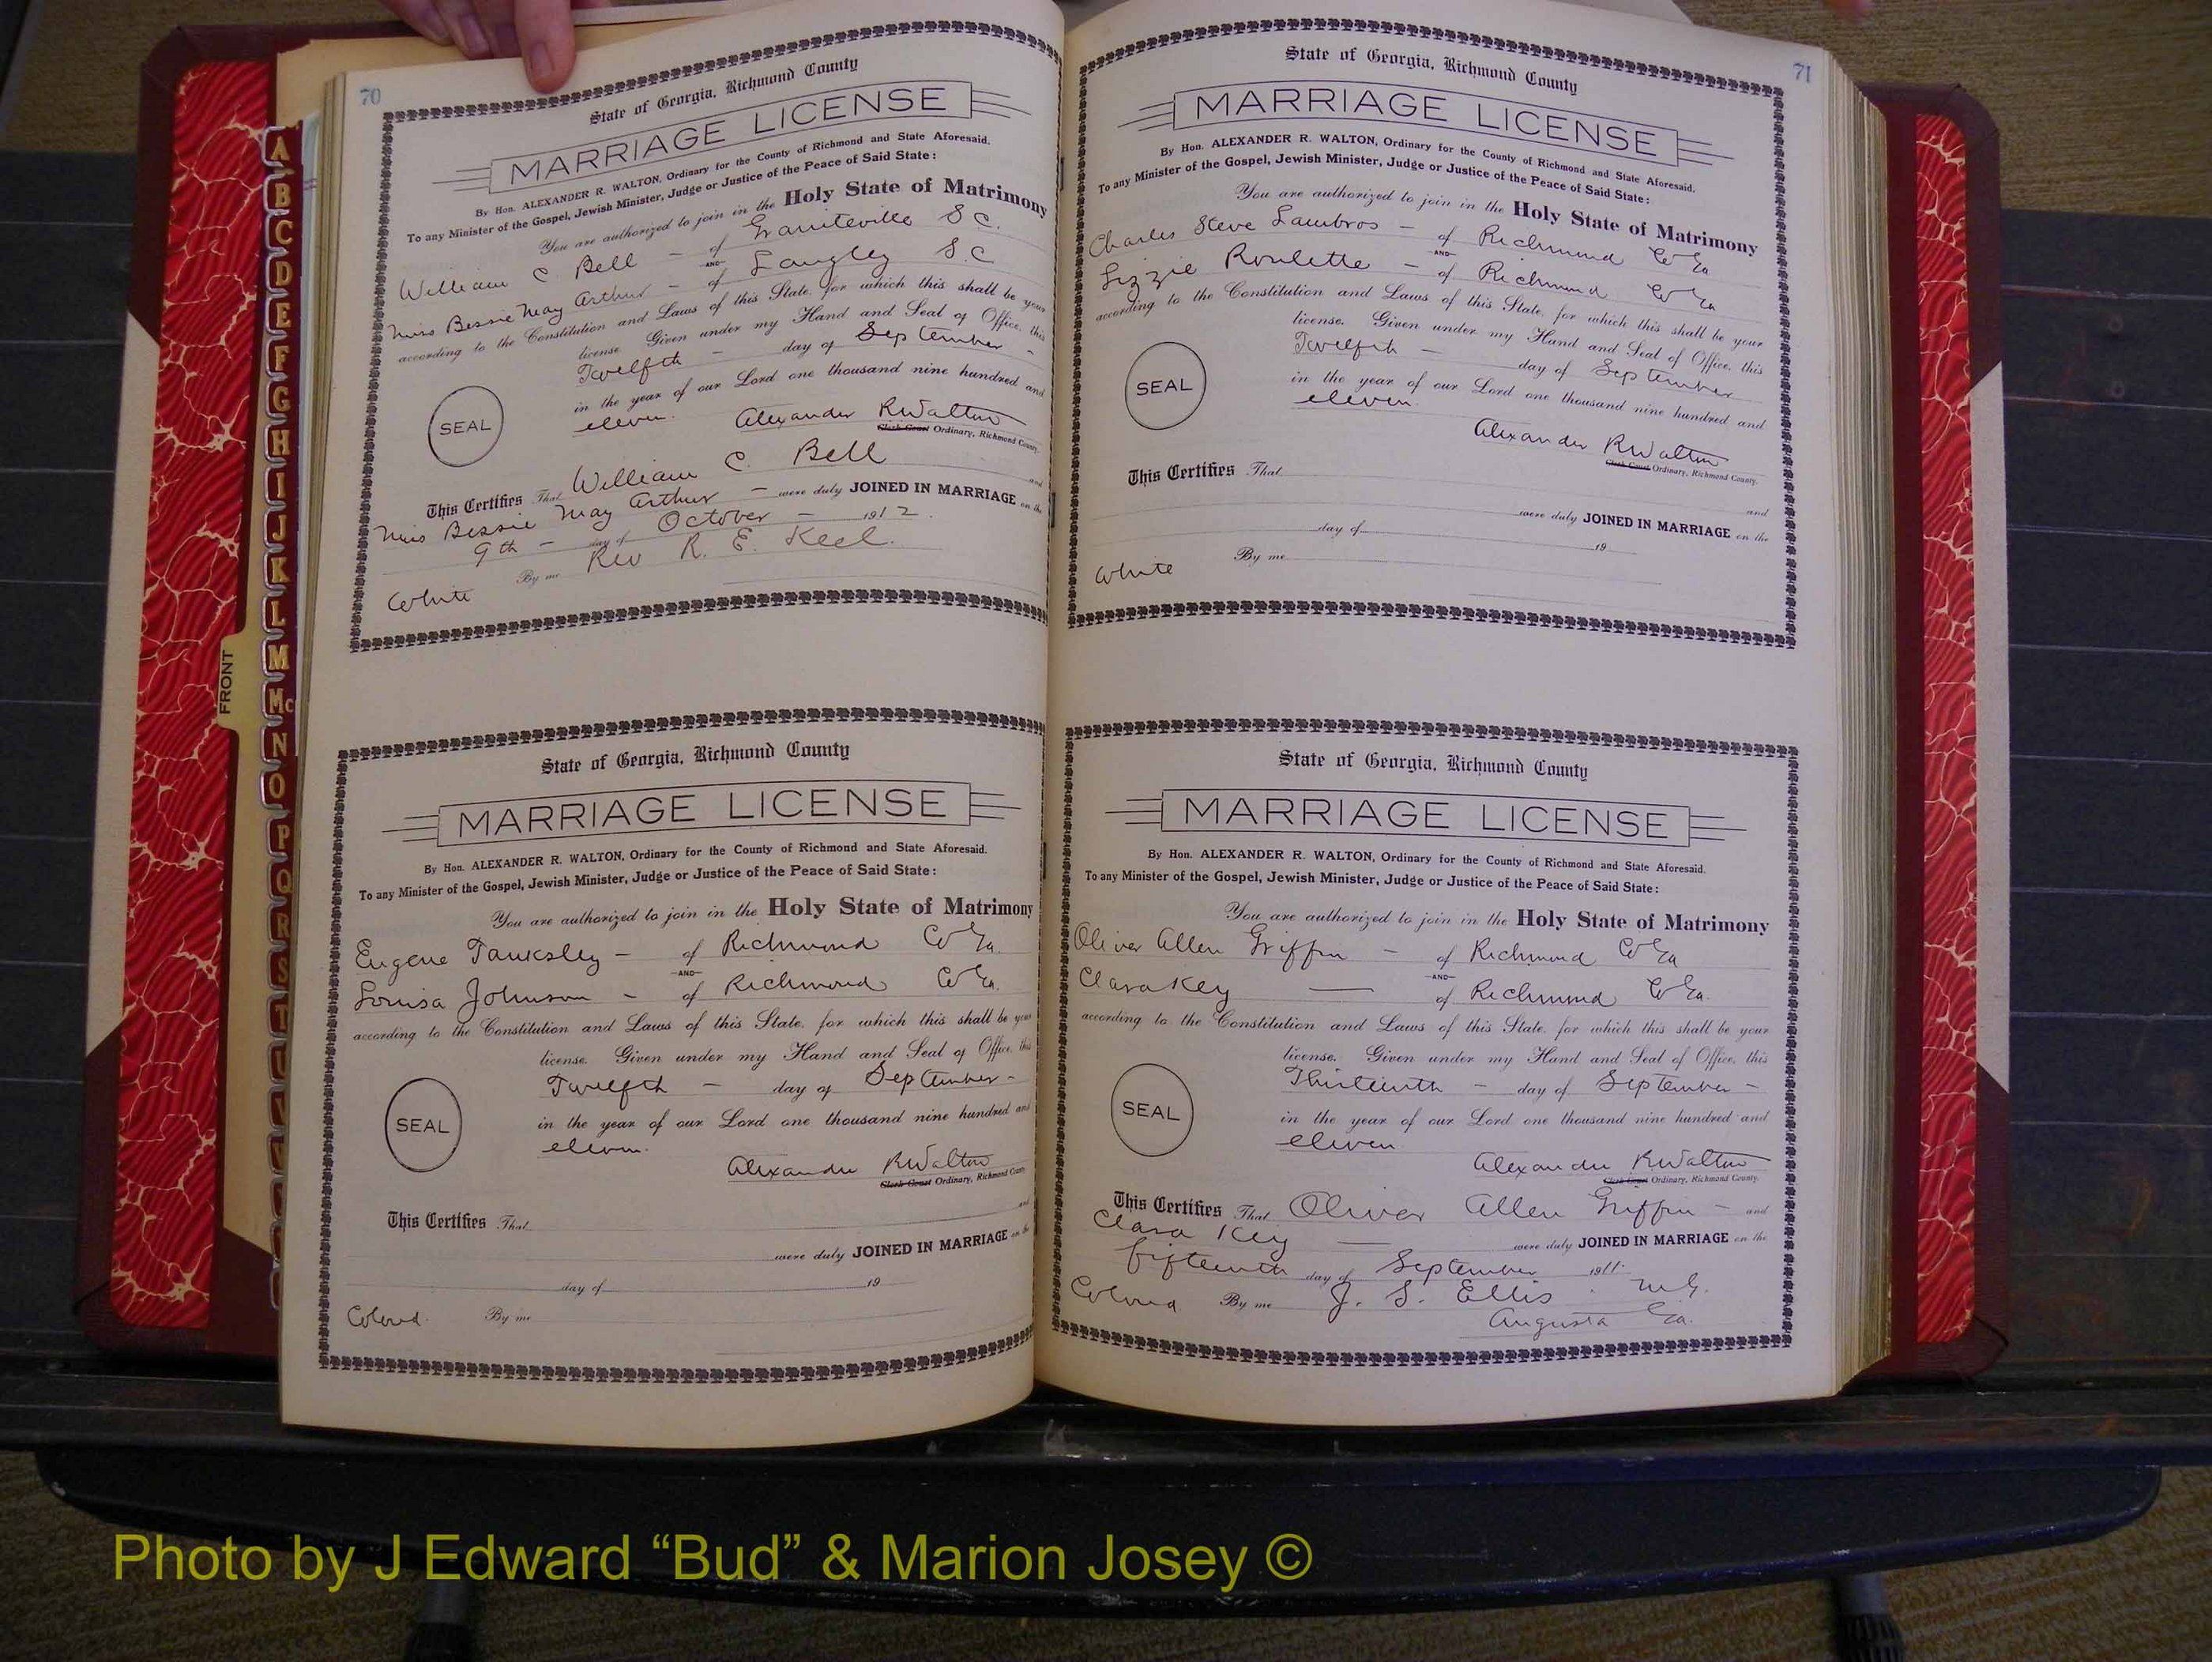 70
State of Georgia, Richmond County
MARRIAGE LICENSE
By Hon. ALEXANDER R. WALTON, Ordinary for the County of Richmond and State Aforesaid.
To any Minister of the Gospel, Jewish Minister, Judge or Justice of the Peace of Said State:
You are authorized to join in the Holy State of Matrimony
William C Bell - of Graniteville S C.
AND
Miss Bessie May Arthur - of Langley S. C
according to the Constitution and Laws of this State, for which this shall be your
license. Given under my Hand and Seal of Office, this
Twelfth - day of September -
in the year of our Lord one thousand nine hundred and
eleven.
SEAL
Alexander R Walton
Clerk Court Ordinary, Richmond County.
This Certifies That William C. Bell and
Miss Bessie May Arthur - were duly JOINED IN MARRIAGE on the
9th - day of October - 1912.
By me Rev R. E. Keel.
White
State of Georgia, Richmond County
MARRIAGE LICENSE
By Hon. ALEXANDER R. WALTON, Ordinary for the County of Richmond and State Aforesaid.
To any Minister of the Gospel, Jewish Minister, Judge or Justice of the Peace of Said State:
You are authorized to join in the Holy State of Matrimony
Eugene Tanksley - of Richmond Co Ga.
AND
Louisa Johnson - of Richmond Co Ga.
according to the Constitution and Laws of this State, for which this shall be your
license. Given under my Hand and Seal of Office, this
Twelfth - day of September -
in the year of our Lord one thousand nine hundred and
eleven.
SEAL
Alexander R Walton
Clerk Court Ordinary, Richmond County
This Certifies That and
were duly JOINED IN MARRIAGE on the
day of 19
Colored. By me
71
State of Georgia, Richmond County
MARRIAGE LICENSE
By Hon. ALEXANDER R. WALTON, Ordinary for the County of Richmond and State Aforesaid.
To any Minister of the Gospel, Jewish Minister, Judge or Justice of the Peace of Said State:
You are authorized to join in the Holy State of Matrimony
Charles Steve Lambros - of Richmond Co Ga
AND
Lizzie Roulette - of Richmond Co Ga
according to the Constitution and Laws of this State, for which this shall be your
license. Given under my Hand and Seal of Office, this
Twelfth - day of September
in the year of our Lord one thousand nine hundred and
eleven.
SEAL
Alexander R Walton
Clerk Court Ordinary, Richmond County.
This Certifies That and
were duly JOINED IN MARRIAGE on the
day of 19
White By me
State of Georgia, Richmond County
MARRIAGE LICENSE
By Hon. ALEXANDER R. WALTON, Ordinary for the County of Richmond and State Aforesaid.
To any Minister of the Gospel, Jewish Minister, Judge or Justice of the Peace of Said State:
You are authorized to join in the Holy State of Matrimony
Oliver Allen Griffin - of Richmond Co Ga
AND
Clara Key - of Richmond Co Ga.
according to the Constitution and Laws of this State, for which this shall be your
license. Given under my Hand and Seal of Office, this
Thirteenth - day of September -
in the year of our Lord one thousand nine hundred and
eleven.
SEAL
Alexander R Walton
Clerk Court Ordinary, Richmond County.
This Certifies That Oliver Allen Griffin - and
Clara Key - were duly JOINED IN MARRIAGE on the
fifteenth day of September 1911.
Colored By me J. S. Ellis. M.G.
Augusta Ga.
FRONT
A
B
C
D
E
F
G
H
I
J
K
L
M
Mc
N
O
P
Q
R
S
T
Photo by J Edward “Bud” & Marion Josey ©